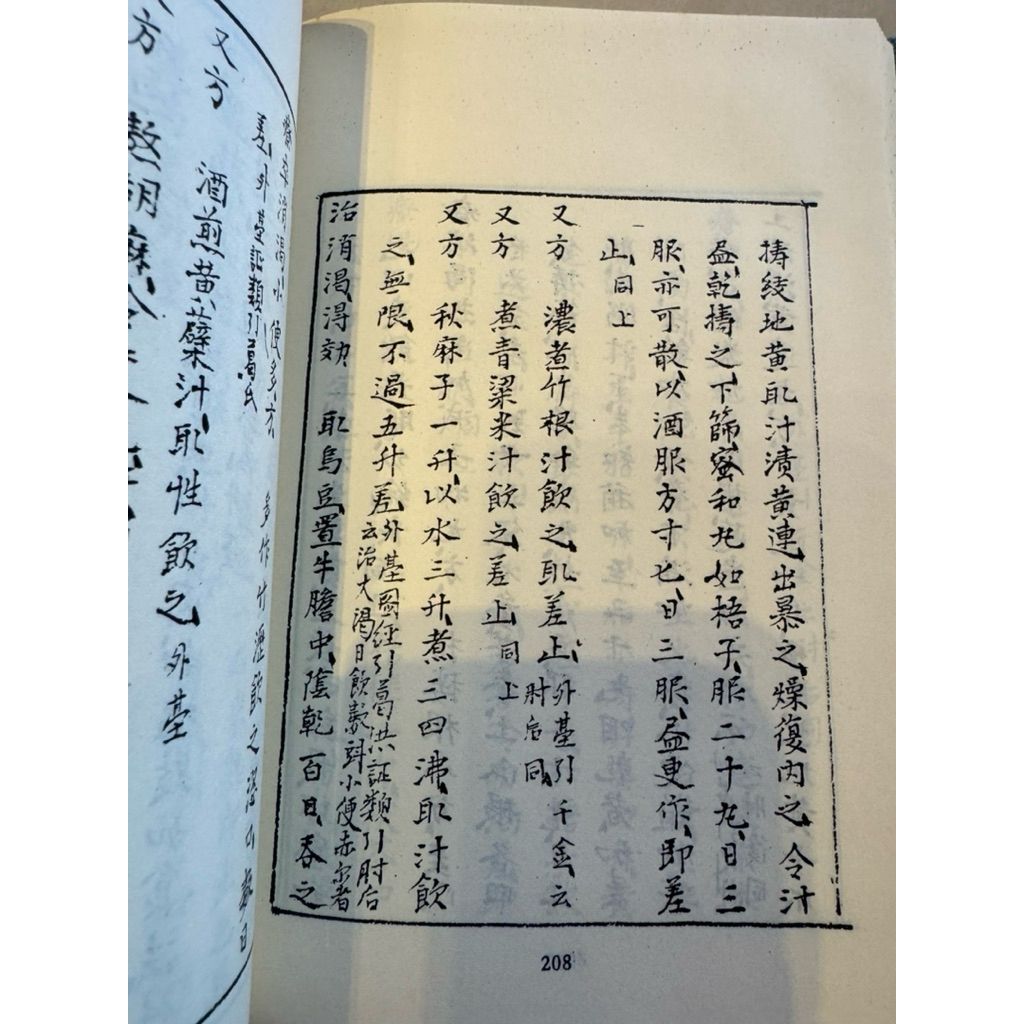 搗綾地黃取汁漬黃連出暴之燥復內之令汁
盡乾搗之下篩蜜和丸如梧子服二十丸日三
服亦可散以酒服方寸匕日三服盡更作即差
止同上
又方 濃煮竹根汁飲之取差止外臺引千金云
肘后同
又方 煮青粱米汁飲之差止同上
又方 秋麻子一升以水三升煮三四沸取汁飲
之無限不過五升差外臺圖經引葛洪証類引肘后
云治大渴日飲數斛小便赤澀者
治消渴得效 取烏豆置牛膽中陰乾百日春之
卒消渴小便多方 多作竹瀝飲之
差外臺証類引葛氏
又方 酒煎黃蘗汁取性飲之外臺
方 熬胡麻令
208